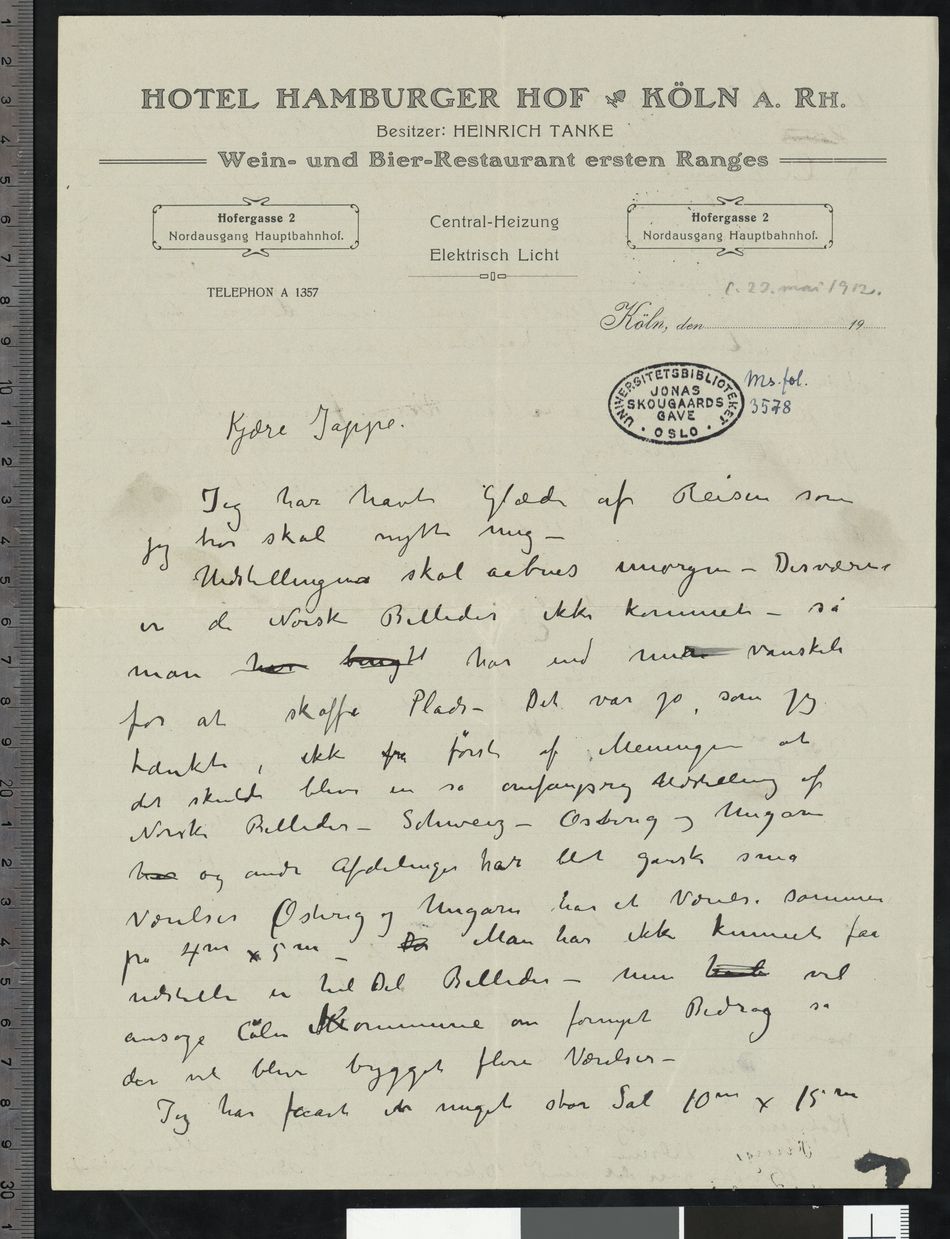 HOTEL HAMBURGER HOF KÖLN A. RH.
Besitzer: HEINRICH TANKE
Wein- und Bier-Restaurant ersten Ranges
Hofergasse 2
Nordausgang Hauptbahnhof.
Central-Heizung
Elektrisch Licht
Hofergasse 2
Nordausgang Hauptbahnhof.
TELEPHON A 1357
22. mai 1912.
Köln, den 19
UNIVERSITETSBIBLIOTEKET
JONAS
SKOUGAARDS
GAVE
OSLO
Ms. fol.
3578
Kjære Jappe.
Jeg har havt Glæde af Reisen som
jeg tror skal nytte mig –
Udstillingen skal aabnes imorgen – Desværre
er de Norske Billeder ikke kommet – så
man har havt vanskeli
for at skaffe Plads – Det var jo, som jeg
tænkte, ikke fra først af Meningen at
det skulde blive en så omfangsrig Udstilling af
Norske Billeder – Schweiz – Østerig og Ungarn
har og andre Afdelinger har blot ganske små
Værelser Østerig og Ungarn har et Værelse sammen
på 4m x 5m – Man har ikke kunnet faa
udstille en hel Del Billeder – men vil
ansøge Cöln Kommune om fornyet Bidrag så
der vil blive bygget flere Værelser –
Jeg har faaet en meget stor Sal 10m x 15m